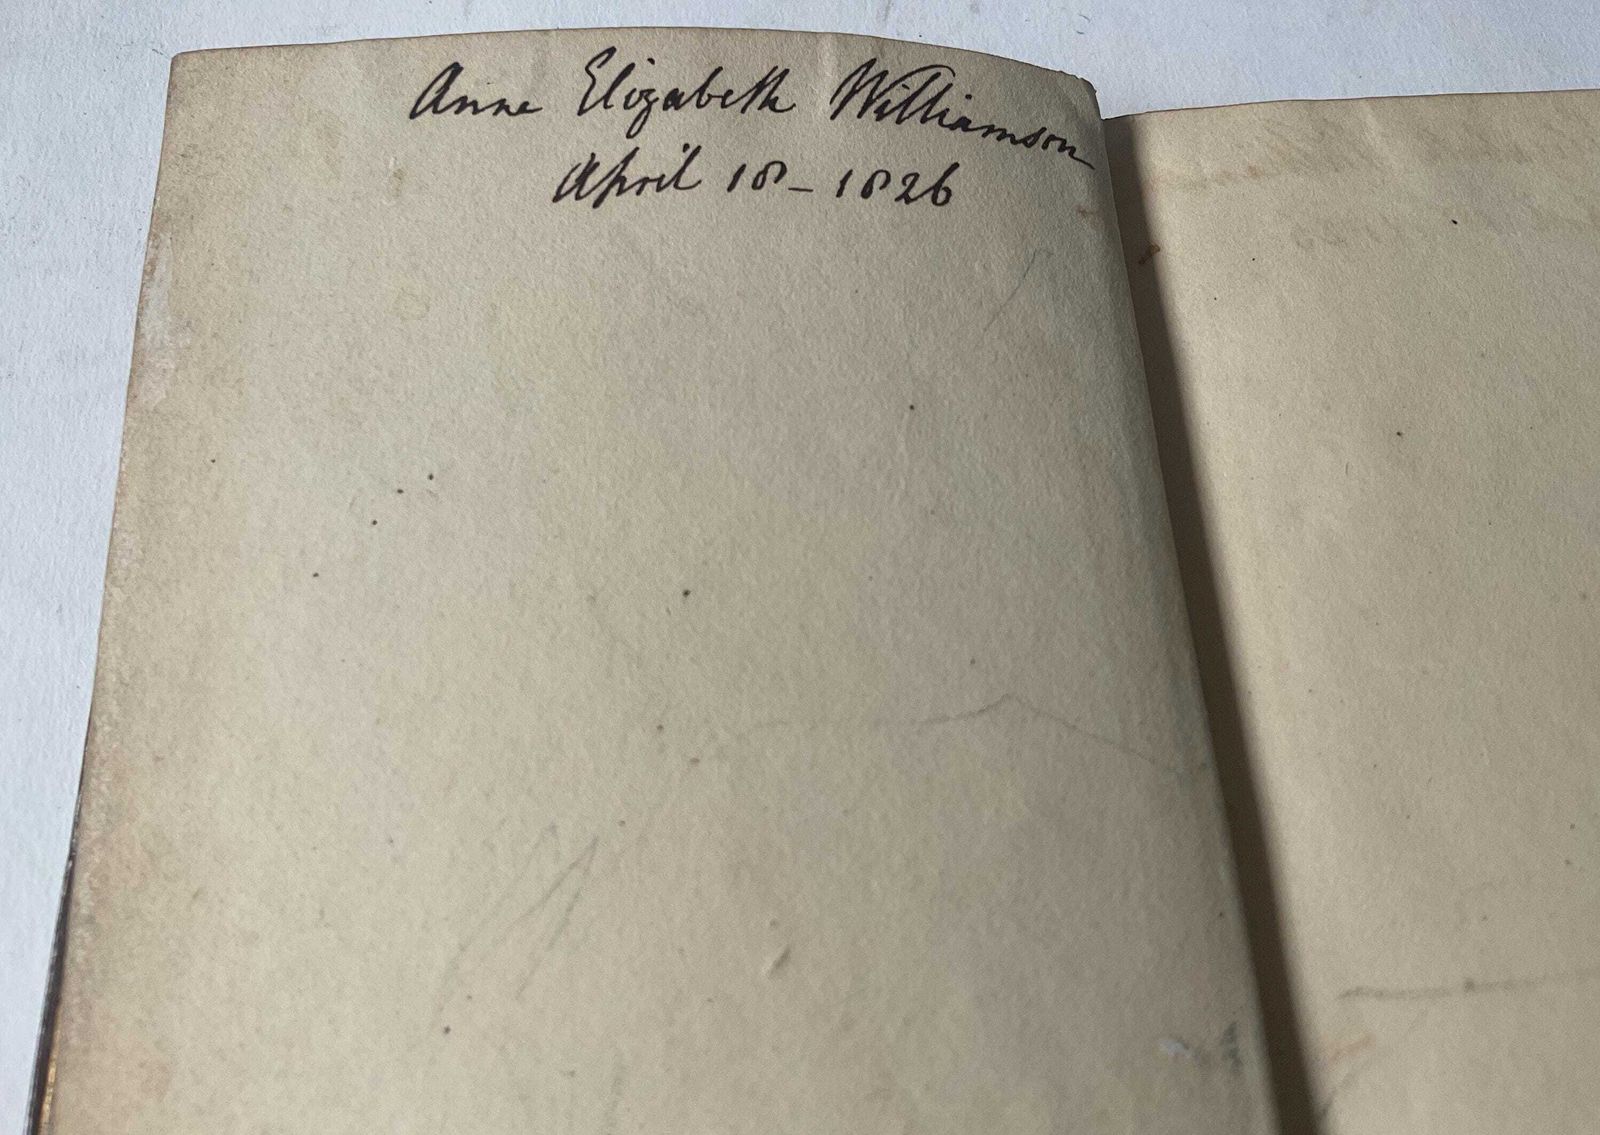 Anne Elizabeth Williamson
April 18 – 1826